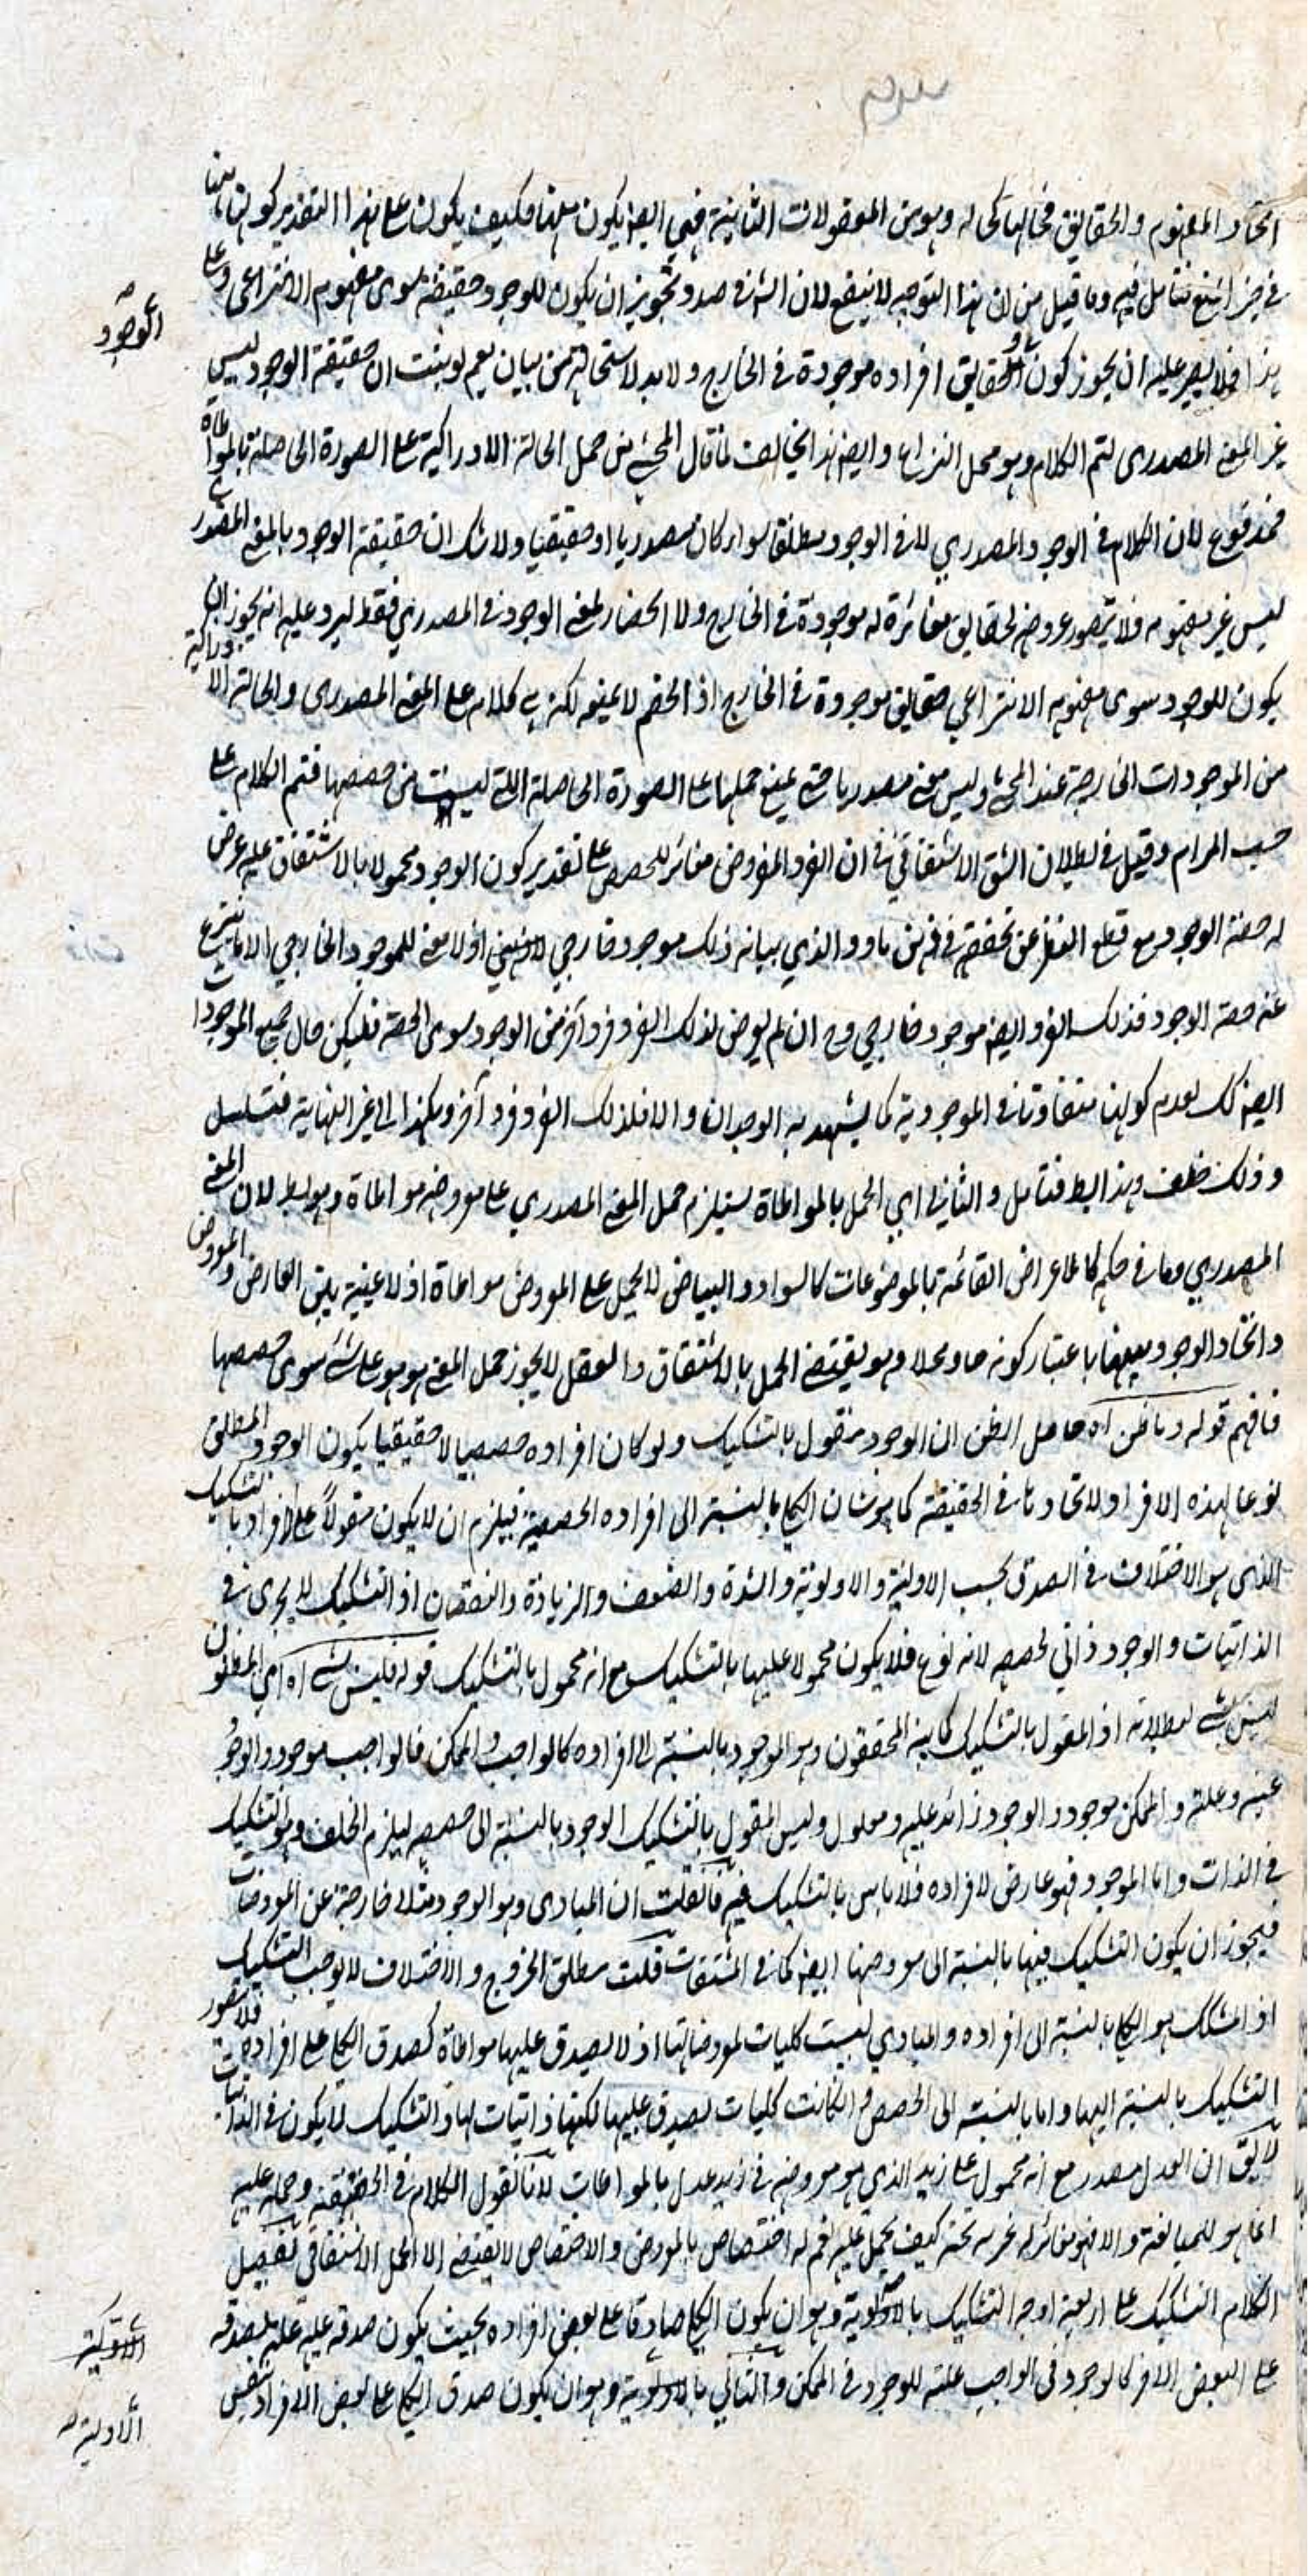 اتحاد المفهوم والحقايق فحالها كحاله وهو من المعقولات الثانية فهي ايضا يكون مثلها فكيف يكون على هذا التقدير كونها
في حيز المنع فتامل فيه وما قيل من ان هذا التوجيه لا ينفع لان الش في صدد تجويز ان يكون للوجود حقيقة سوى مفهوم الانتزاعي وعلى
هذا فلا يصير عليه ان يجوز كون الحقايق افراده موجودة في الخارج ولا بد لاستحالته من بيان نعم لو يثبت ان حقيقة الوجود ليس
الوجود
غير المعنى المصدري لتم الكلام وهو محل النزاع وايضا هذا يخالف لما قال المحشي من حمل الحالة الادراكية على الصورة الحاصلة بالمواطاة
فمدفوع لان الكلام في الوجود المصدري لا في الوجود مطلقا سواء كان مصدريا او حقيقيا ولا شك ان حقيقة الوجود بالمعنى المصدري
ليس غير مفهومه فلا يتصور عروضه لحقايق مغائرة له موجودة في الخارج ولا انحصار لمعنى الوجود في المصدري فقط ليرد عليه انه يجوز ان
يكون للوجود سوى مفهومه الانتزاعي حقايق موجودة في الخارج اذ الخصم لا يمنعه لكنه بـ كلامه على المعنى المصدري والحالة الادراكية
من الموجودات الخارجية عند المحشي وليس معنى مصدريا حتى يمنع حملها على الصورة الحاصلة التي ليست من حصصها فتم الكلام على
حسب المرام وقيل في بطلان الشق الاشتقاقي في ان الفرد المفروض مغائر للحصص على تقدير كون الوجود محمولا بالاشتقاق عليه عرض
له حصة الوجود مع قطع النظر عن تحققه في ذهن ما والذي بيانه ذلك موجود خارجي لا ذهني اذ لا معنى للموجود الخارجي الا ما ينتزع
عنه حصة الوجود فذلك الفرد ايضا موجود خارجي وح ان لم يعرض لذلك الفرد فرد آخر من الوجود سوى الحصة فليكن حال جميع الموجودات
ايضا كك لعدم كونها متفاوتة في الموجودية كما يشهد به الوجدان والا فلذلك الفرد فرد آخر وهكذا الى غير النهاية فتسلسل
وذلك خلف وهذا ابسط فتامل والثاني اي الحمل بالمواطاة يستلزم حمل المعنى المصدري على معروضه مواطاة وهو بط لان المعنى
المصدري وما في حكمه كالاعراض القائمة بالموضوعات كالسواد والبياض لا يحمل على المعروض مواطاة اذ لا عينية بين العارض والمعروض
واتحاد الوجود معها باعتبار كونه حالا ومحلا وهو يقتضي الحمل بالاشتقاق والعقل لا يجوز حمل المعنى هو هو على شئ سوى حصصها
فافهم قوله وما ظن اه حاصل الظن ان الوجود مقول بالتشكيك ولو كان افراده حصصيا لا حقيقيا يكون الوجود المطلق
نوعا لهذه الافراد لاتحادها في الحقيقة كما هو شان الكلي بالنسبة الى افراده الحصصية فيلزم ان لا يكون مقولا على افراده بالتشكيك
الذي هو الاختلاف في الصدق بحسب الاولية والاولوية والشدة والضعف والزيادة والنقصان اذ التشكيك لا يجرى في
الذاتيات والوجود ذاتي لحصصه لانه نوع فلا يكون محمولا عليها بالتشكيك مع انه محمول بالتشكيك قوله فليس بشئ اه اي المظنون
ليس بشئ لبطلانه اذ المقول بالتشكيك كما بينه المحققون وهو الموجود بالنسبة الى افراده كالواجب والممكن فالواجب موجود والوجود
عينه وعلته والممكن موجود والوجود زائد عليه ومعلول وليس المقول بالتشكيك الوجود بالنسبة الى حصصه ليلزم الخلف وهو التشكيك
في الذات واما الموجود فهو عارض لافراده فلا باس بالتشكيك فيه فان قلت ان المبادى وهو الوجود مثلا خارجة عن المعروضات
فيجوز ان يكون التشكيك فيها بالنسبة الى معروضها ايضا كما في المشتقات قلت مطلق الخروج والاختلاف لا يوجب التشكيك
اذ المشكك هو الكلي بالنسبة الى افراده والمبادي ليست كليات لمعروضاتها اذ لا يصدق عليها مواطاة كصدق الكلي على افراده فلا يتصور
التشكيك بالنسبة اليها واما بالنسبة الى الحصص وان كانت كليات تصدق عليها لكنها ذاتيات لها والتشكيك لا يكون في الذاتيات
لا يق ان العدل مصدر مع انه محمول على زيد الذي هو معروضه في زيد عدل بالمواطات لانا نقول الكلام في الحقيقة وحمله عليه
انما هو للمبالغة والا فهو مغائر له كيف يحمل عليه نعم له اختصاص بالمعروض والاختصاص لا يقتضي الا الحمل الاشتقاقي تفصيل
الكلام التشكيك على اربعة اوجه التشكيك بالاولوية وهو ان يكون الكلي صادقا على بعض افراده بحيث يكون صدقه عليه علة لصدقه
الاولية
على البعض الاخر كالوجود في الواجب علته للوجود في الممكن والثاني بالاولوية وهو ان يكون صدق الكلي على بعض الافراد
الاولية